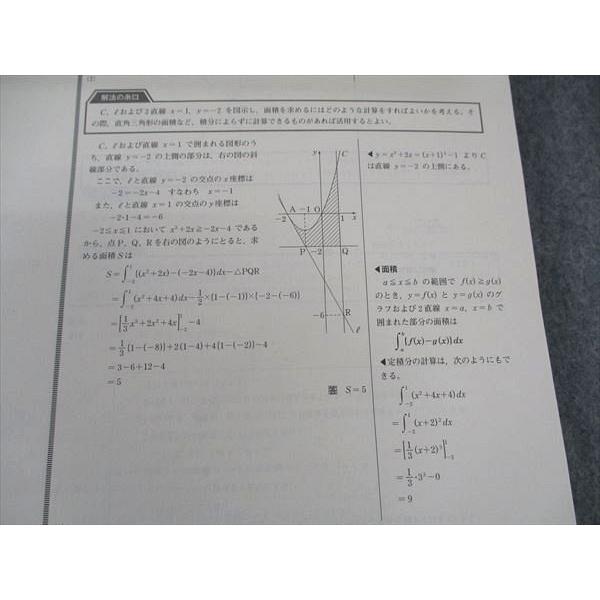 (2)
解法の糸口
C, ℓ および 2 直線 x=1, y=-2 を図示し, 面積を求めるにはどのような計算をすればよいかを考える。そ
の際, 直角三角形の面積など, 積分によらずに計算できるものがあれば活用するとよい。
C, ℓ および直線 x=1 で囲まれる図形のう
ち, 直線 y=-2 の上側の部分は, 右の図の斜
線部分である。
ここで, ℓ と直線 y=-2 の交点の x 座標は
-2=-2x-4 すなわち x=-1
また, ℓ と直線 x=1 の交点の y 座標は
-2・1-4=-6
-2≦x≦1 において x²+2x≧-2x-4 である
から, 点 P, Q, R を右の図のようにとると, 求
める面積 S は
S=∫_{-2}^{1}{(x²+2x)-(-2x-4)}dx-△PQR
=∫_{-2}^{1}(x²+4x+4)dx-1/2×{1-(-1)}×{-2-(-6)}
=[1/3x³+2x²+4x]_{-2}^{1}-4
=1/3{1-(-8)}+2(1-4)+4{1-(-2)}-4
=3-6+12-4
=5
答 S=5
y
C
A -1 O
-2
1
x
P -2 Q
-6
R
ℓ
◀ y=x²+2x=(x+1)²-1 より C
は直線 y=-2 の上側にある。
◀面積
a≦x≦b の範囲で f(x)≧g(x)
のとき, y=f(x) と y=g(x) のグ
ラフおよび 2 直線 x=a, x=b で
囲まれた部分の面積は
∫_{a}^{b}{f(x)-g(x)}dx
◀定積分の計算は, 次のようにもで
きる。
∫_{-2}^{1}(x²+4x+4)dx
=∫_{-2}^{1}(x+2)²dx
=[1/3(x+2)³]_{-2}^{1}
=1/3・3³-0
=9